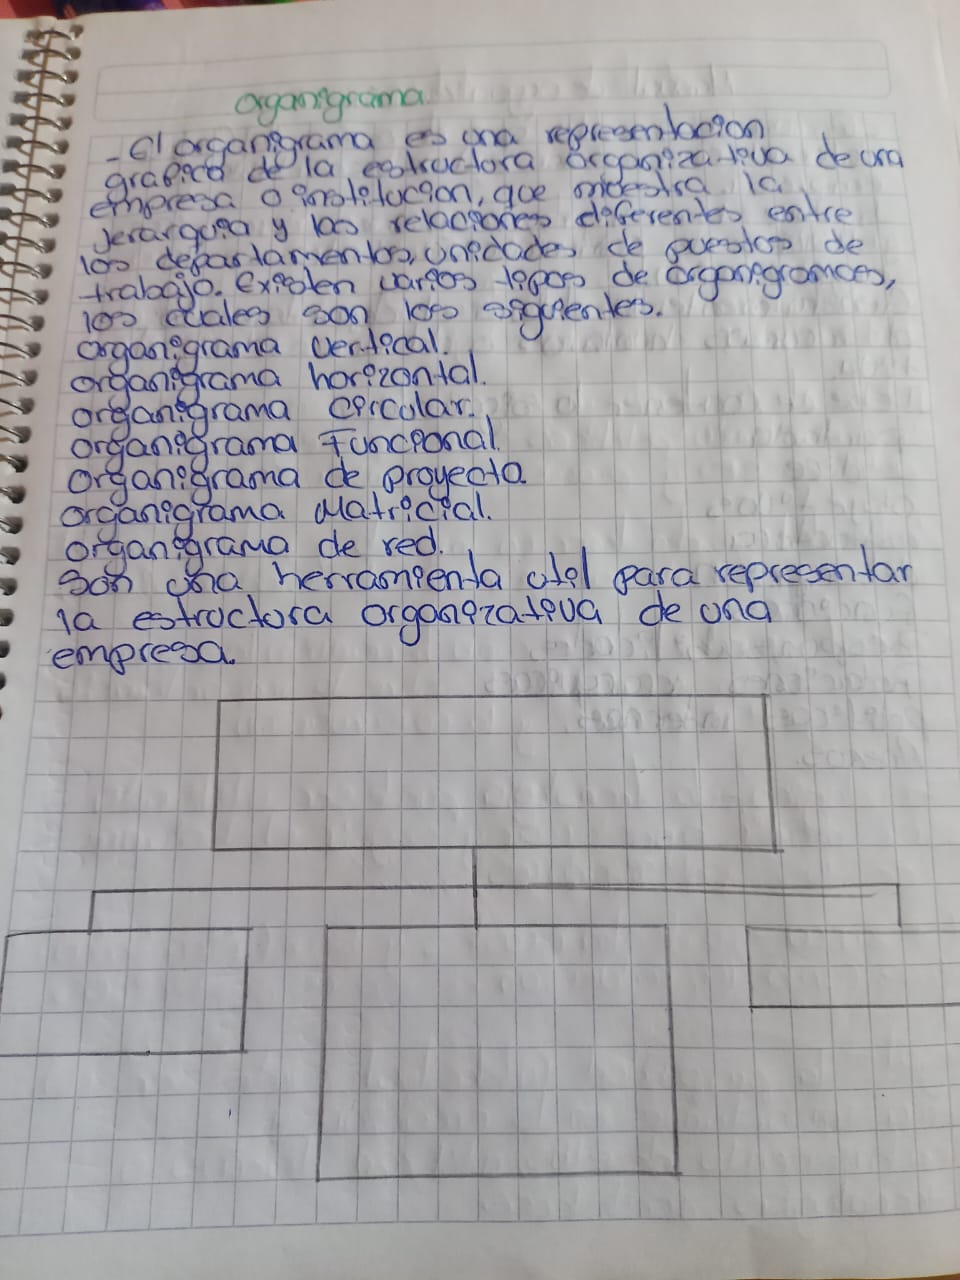 organigrama
- El organigrama es una representacion
grafica de la estructura organizativa de una
empresa o institucion, que muestra la
jerarquia y las relaciones diferentes entre
los departamentos, unidades de puestos de
trabajo. Existen varios tipos de organigramas,
los cuales son los siguientes.
organigrama vertical.
organigrama horizontal.
organigrama circular.
organigrama Funcional
organigrama de proyecto
organigrama Matricial.
organigrama de red.
son una herramienta util para representar
la estructura organizativa de una
empresa.